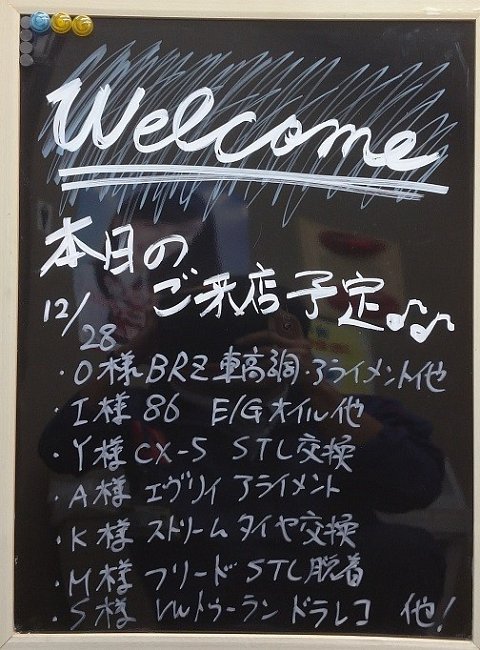 Welcome
本日の
ご来店予定♪♫
12/28
・O様 BRZ 車高調・アライメント他
・I様 86 E/Gオイル他
・Y様 CX-5 STL交換
・A様 エヴリィ アライメント
・K様 ストリーム タイヤ交換
・M様 フリード STL脱着
・S様 VWトゥーラン ドラレコ 他!